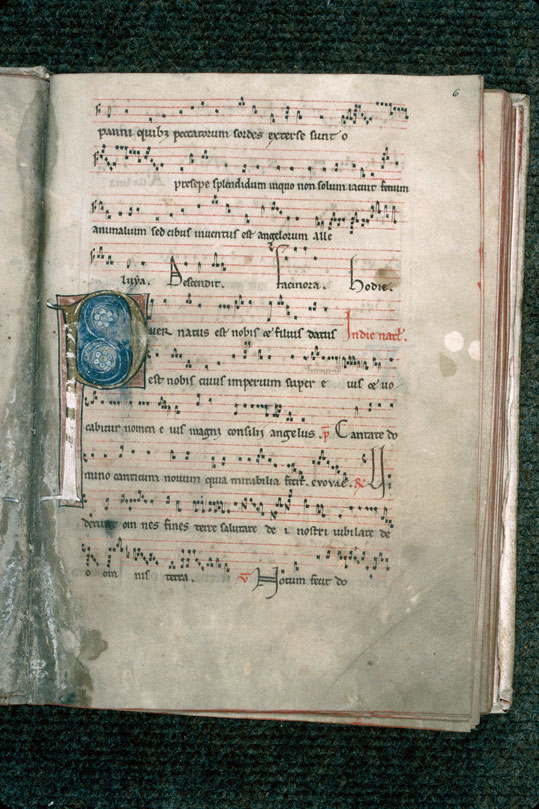 6
panni quibz peccatorum sordes exterse sunt o
presepe splendidum inquo non solum iacuit fenum
animalium sed cibus inventus est angelorum Alle
luya. Descendit. Facinora. Hodie.
Puer natus est nobis et filius datus In die nat.
est nobis cuius imperium super e ius et vo
cabitur nomen e ius magni consilij angelus. p Cantate do
mino canticum novum quia mirabilia fecit. evovae. R Vi
derunt om nes fines terre salutare de i nostri iubilate de
o om nis terra. V Notum fecit do